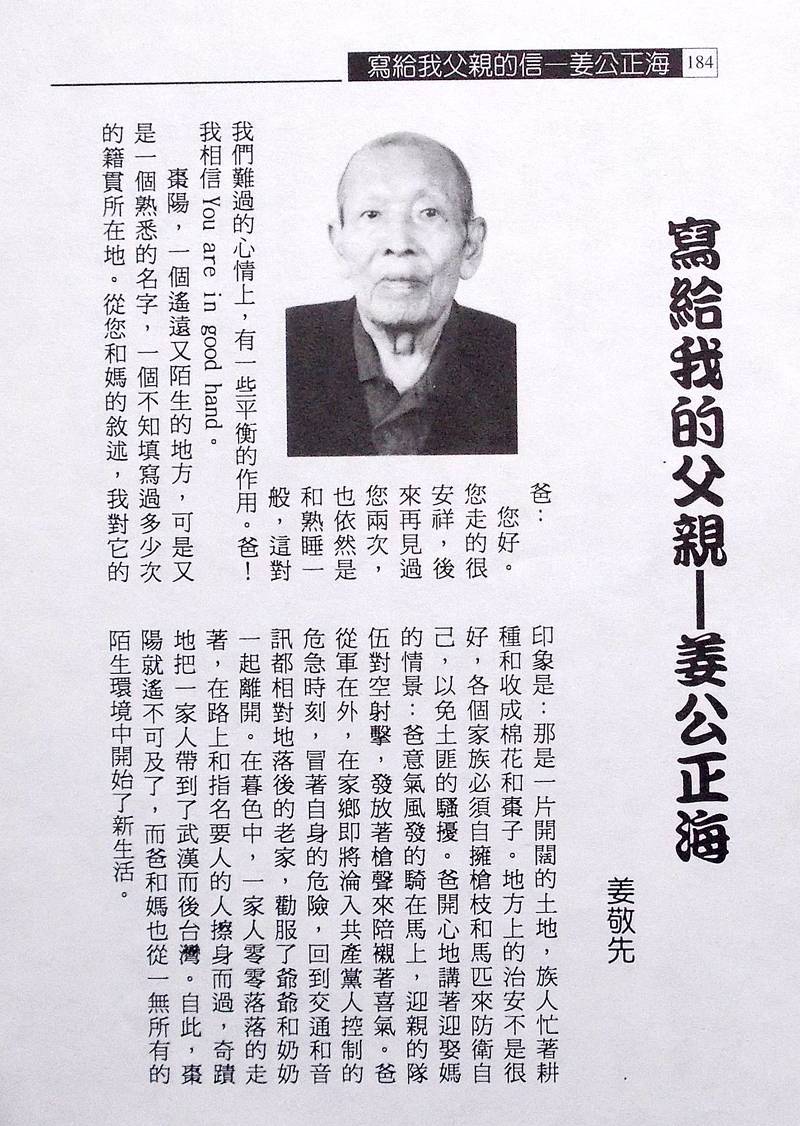 寫給我父親的信—姜公正海
184
寫給我的父親—姜公正海
姜敬先
爸：
您好。
您走的很
安祥，後
來再見過
您兩次，
也依然是
和熟睡一
般，這對
我們難過的心情上，有一些平衡的作用。爸！
我相信You are in good hand。
棗陽，一個遙遠又陌生的地方，可是又
是一個熟悉的名字，一個不知填寫過多少次
的籍貫所在地。從您和媽的敘述，我對它的
印象是：那是一片開闊的土地，族人忙著耕
種和收成棉花和棗子。地方上的治安不是很
好，各個家族必須自擁槍枝和馬匹來防衛自
己，以免土匪的騷擾。爸開心地講著迎娶媽
的情景：爸意氣風發的騎在馬上，迎親的隊
伍對空射擊，發放著槍聲來陪襯著喜氣。爸
從軍在外，在家鄉即將淪入共產黨人控制的
危急時刻，冒著自身的危險，回到交通和音
訊都相對地落後的老家，勸服了爺爺和奶奶
一起離開。在暮色中，一家人零零落落的走
著，在路上和指名要人的人擦身而過，奇蹟
地把一家人帶到了武漢而後台灣。自此，棗
陽就遙不可及了，而爸和媽也從一無所有的
陌生環境中開始了新生活。